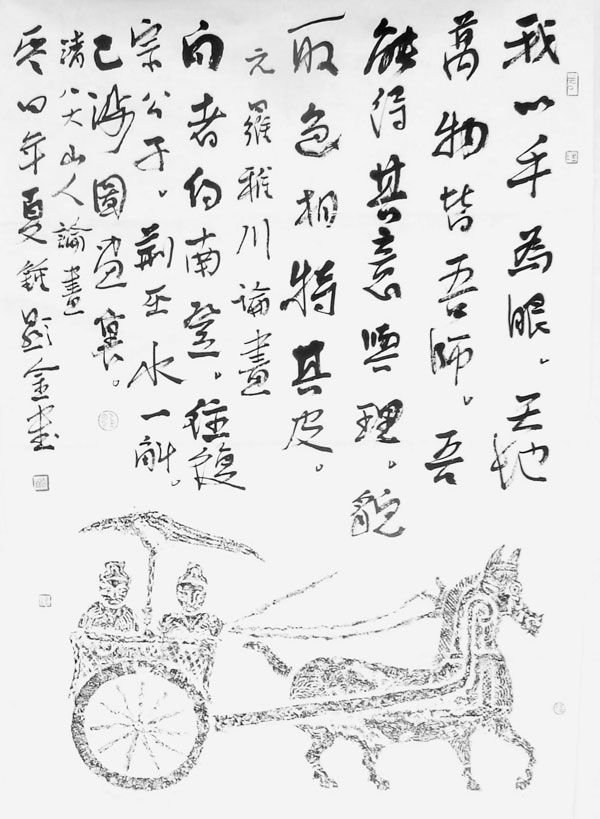 我以手為眼。天地
萬物皆吾師。吾
能得其意與理。貌
取色相特其皮。
元羅稚川論畫
向者約南登。往復
宗公子。荊巫水一斛。
已涉圖畫裏。
清八大山人論畫
年夏鍾金書